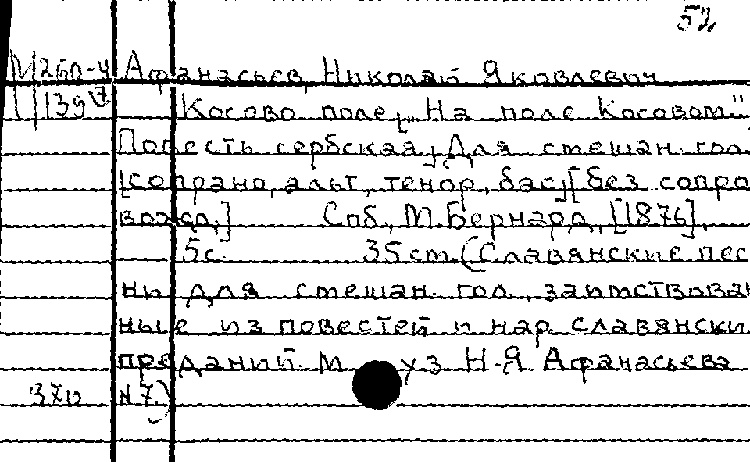 52
М260-4 Афанасьев, Николай Яковлевич
Косово поле [„На поле Косовом"
Повесть сербская] Для смешан. гол.
[сопрано, альт, тенор, бас] [без сопро
вожд.] Спб., М. Бернард, [1876].
5с. 35 cm. (Славянские пес
ни для смешан. гол., заимствован
ные из повестей и нар. славянски
преданий. Муз Н. Я Афанасьева
№7.)